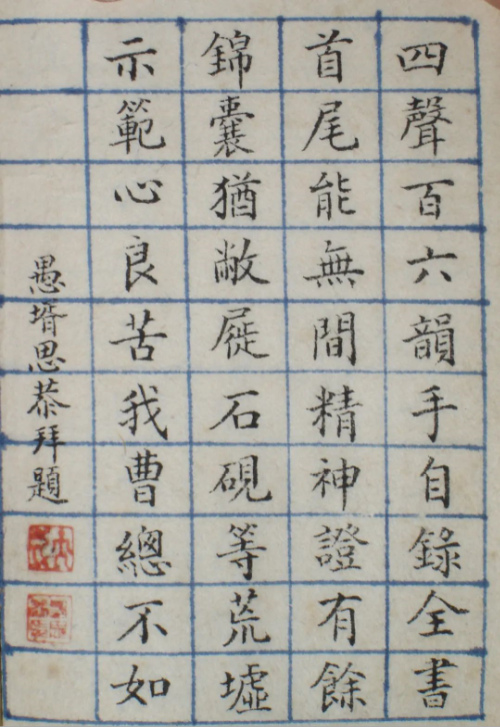 四聲百六韻手自錄全書
首尾能無間精神證有餘
錦囊猶敝屣石硯等荒墟
示範心良苦我曹總不如
愚壻思恭拜題